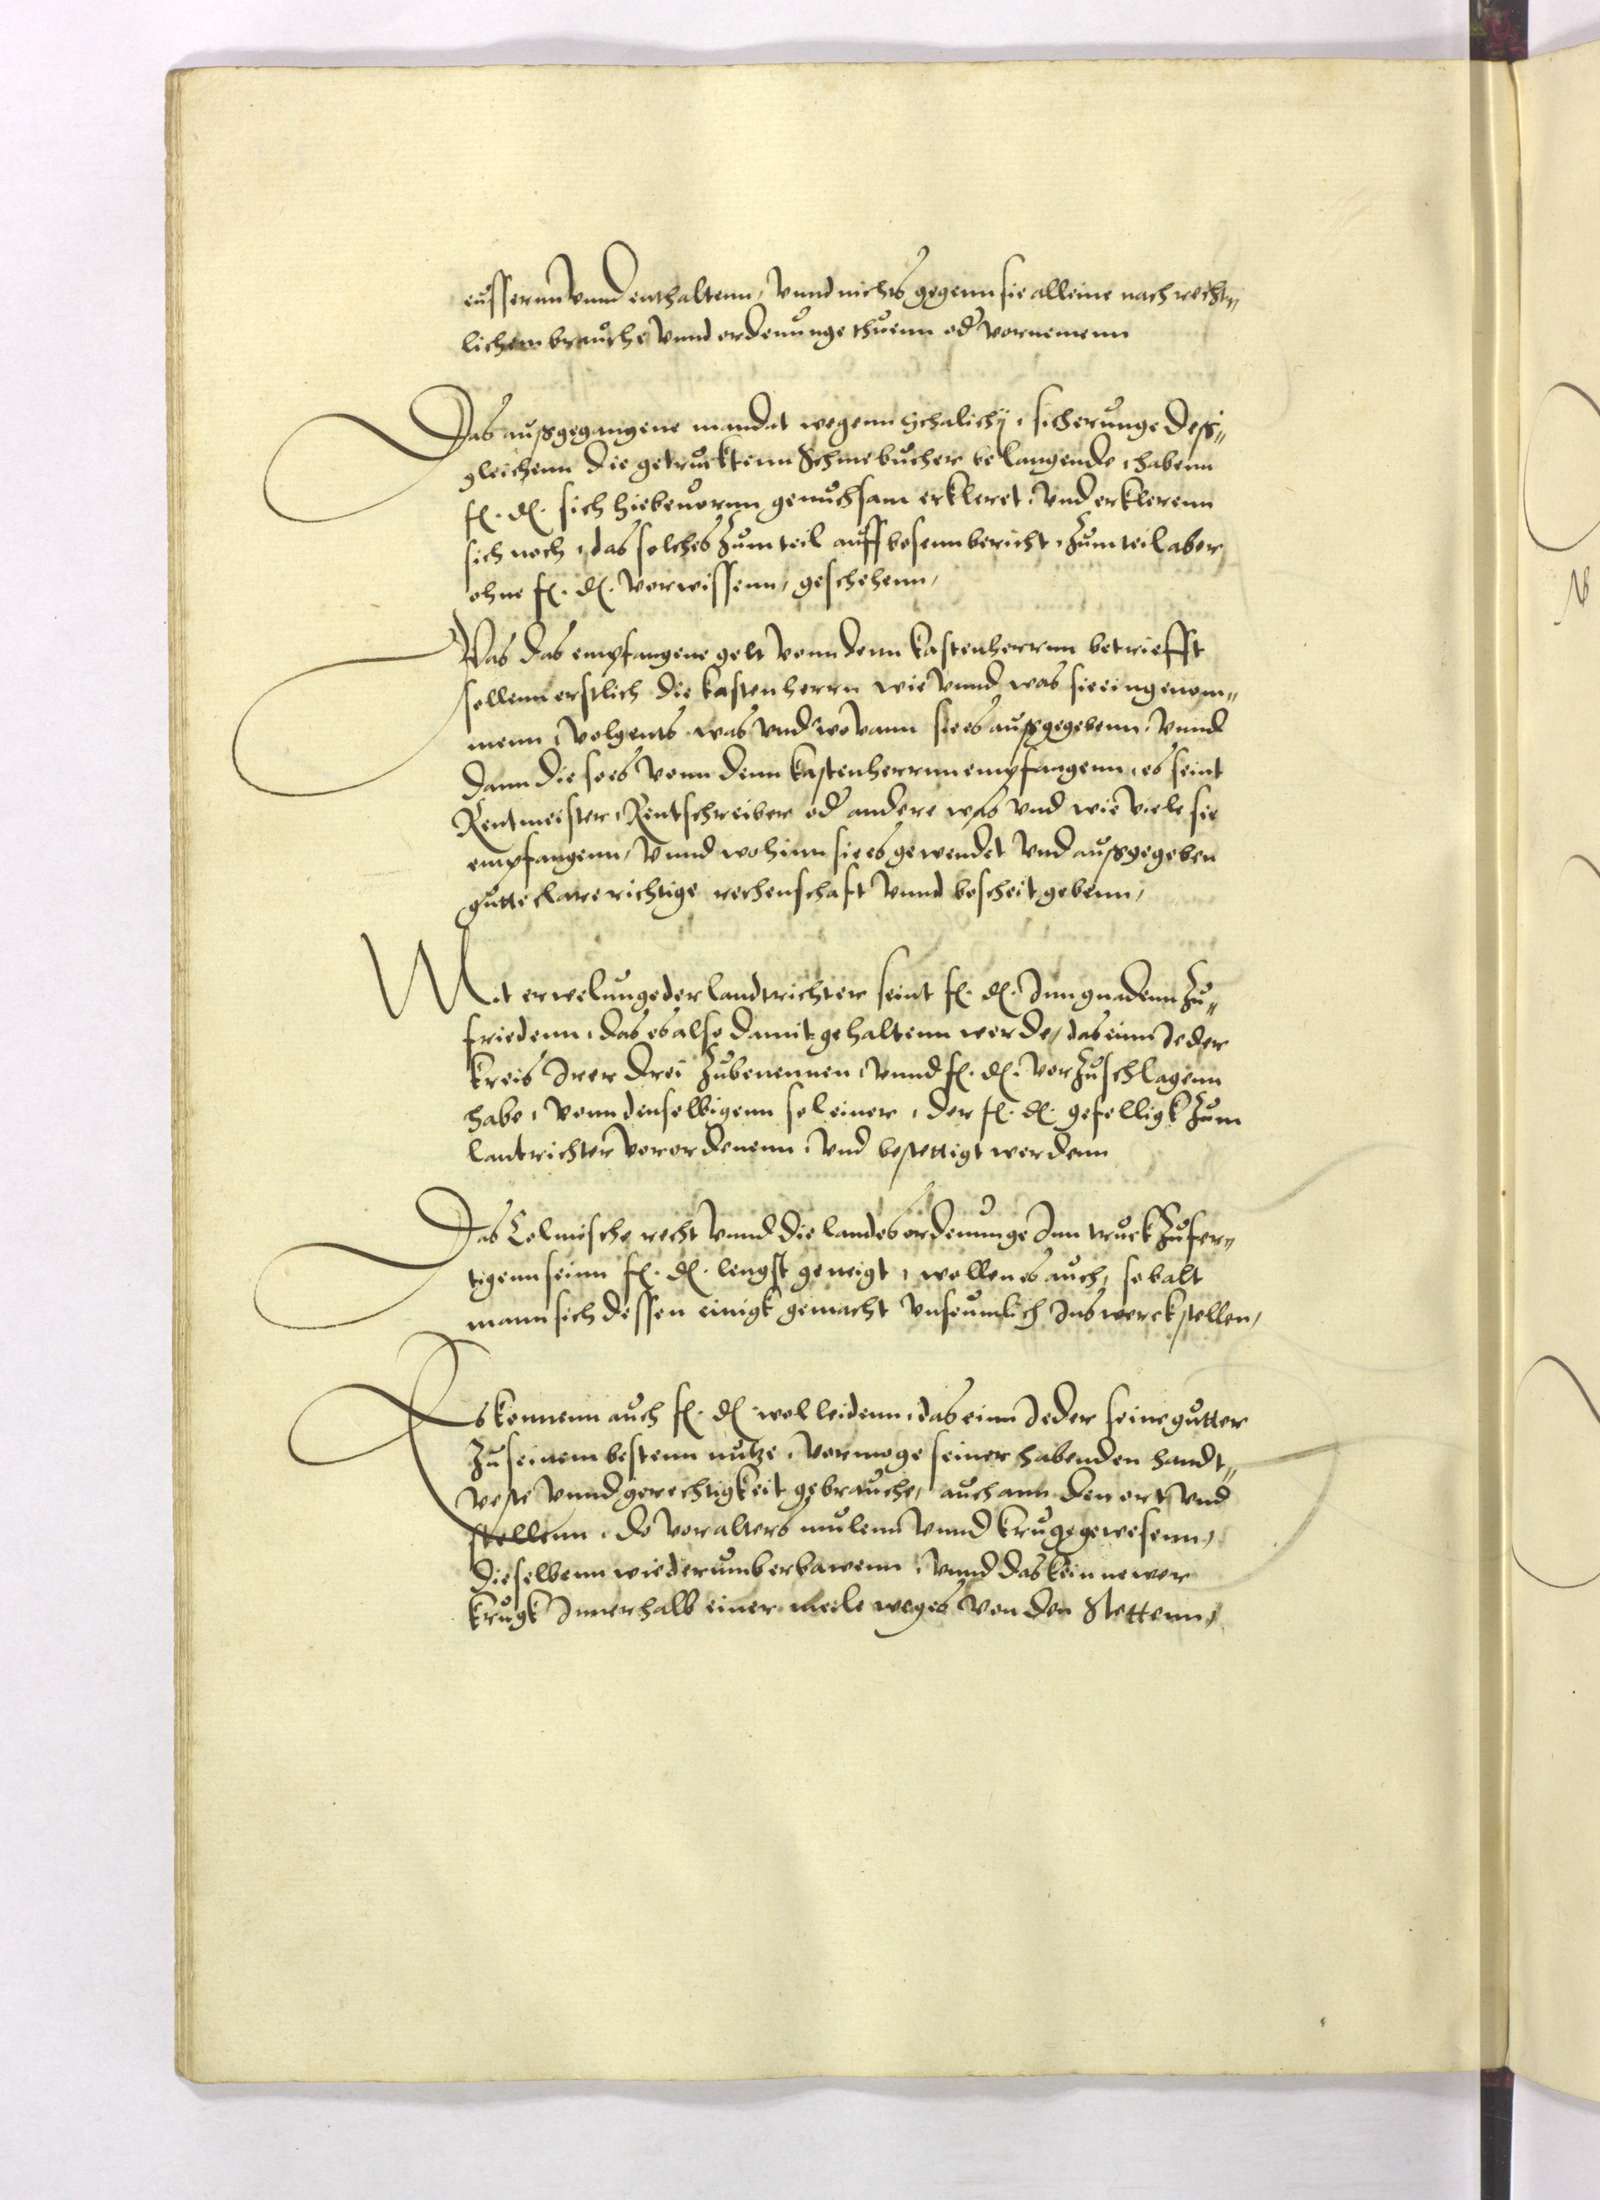 eussernn vnnd enthaltenn, vnnd nichts gegenn sie alleine nach recht„
lichem brauche vnnd ordenunge thuenn od vornemenn
Das außgegangene mandat wegenn Schalichÿ, sicherunge deß„
gleichenn die getrucktenn Schmebucher belangende, habenn
f. d. sich hiebeuornn genuchsam erkleret, vnd erklerenn
sich noch, das solches zum teil auff bosenn bericht, zum teil aber
ohne f. d. vorwissenn, geschehenn,
Was das empfangene gelt vonn denn kastenherrnn betriefft
sollenn erstlich die kastenherrn wie vnnd was sie eingenom„
menn, volgents was vnd wovann sie es außgegebenn, vnnd
dann die so es vonn denn kastenherrnn empfangenn, es seint
Rentmeister, Rentschreiber od andere was vnd wie viele sie
empfangenn, vnnd wohinn sie es gewendet vnd außgegeben
gutte klare richtige rechenschaft vnnd bescheit gebenn,
Mit erwelunge der landtrichter seint f. d. Inn gnadenn zu„
friedenn, das es also damit gehaltenn werde, das einn Jeder
kreis Irer drei zubenennen, vnnd f. d. vorzuschlagenn
habe, vonn denselbigenn sol einer, der f. d. gefelligk zum
lantrichter verordenenn, vnd bestettigt werdenn
Das Colmische recht vnnd die landesordenunge Inn truck zufer„
tigenn seinn f. d. lengst geneigt, wollen es auch, so balt
mann sich dessen einigk gemacht vnseumlich Ins werck stellen,
Es konnenn auch f. d. wol leidenn, das einn Jeder seine gutter
zu seinem bestenn nutze, vermoge seiner habenden handt„
veste vnnd gerechtigkeit gebrauche, auch ann den ort vnd
stellenn, do vor alters mulenn vnnd kruge gewesenn,
dieselbenn wiederumb erbawenn, vnnd das kein newer
krugk Innerhalb einer meile weges von den Stettenn,